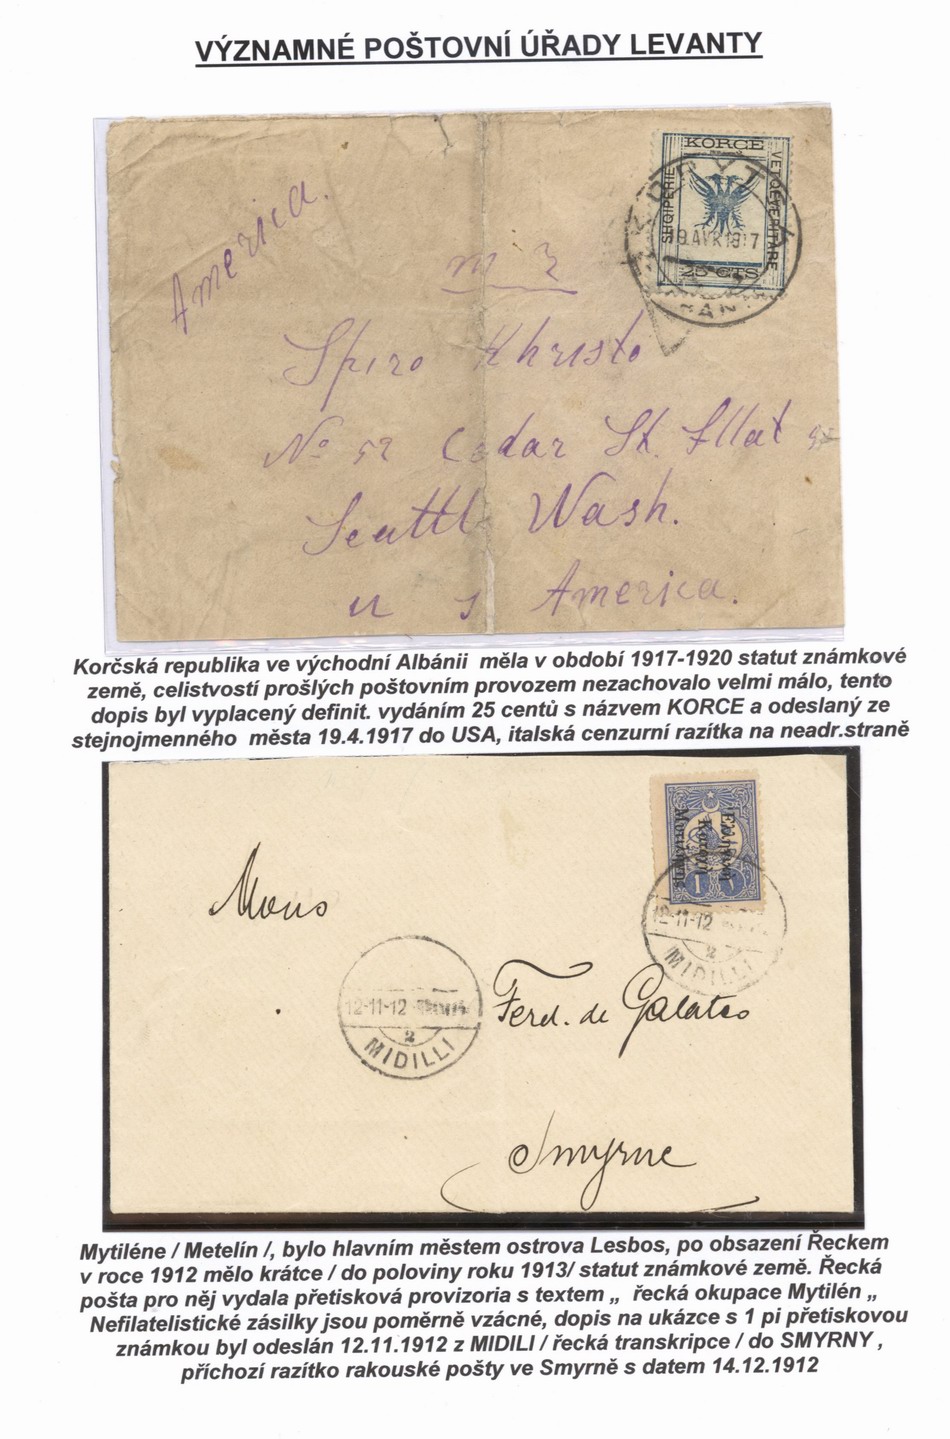 VÝZNAMNÉ POŠTOVNÍ ÚŘADY LEVANTY
KORCE
SHQIPERIE
VETQEVERITARE
25 CTS
AVR 1917
America.
Spiro Khristo
No 52 Cedar St. Flat
Seattl Wash.
u s America.
Korčská republika ve východní Albánii měla v období 1917-1920 statut známkové
země, celistvostí prošlých poštovním provozem nezachovalo velmi málo, tento
dopis byl vyplacený definit. vydáním 25 centů s názvem KORCE a odeslaný ze
stejnojmenného města 19.4.1917 do USA, italská cenzurní razítka na neadr.straně
Ἑλληνικὴ
Κατοχὴ
Μυτιλήνης
1 1
12-11-12
2
MIDILLI
Mons
12-11-12
2
MIDILLI
Ferd. de Galateo
Smyrne
Mytiléne / Metelín /, bylo hlavním městem ostrova Lesbos, po obsazení Řeckem
v roce 1912 mělo krátce / do poloviny roku 1913/ statut známkové země. Řecká
pošta pro něj vydala přetisková provizoria s textem „ řecká okupace Mytilén „
Nefilatelistické zásilky jsou poměrně vzácné, dopis na ukázce s 1 pi přetiskovou
známkou byl odeslán 12.11.1912 z MIDILI / řecká transkripce / do SMYRNY ,
příchozí razítko rakouské pošty ve Smyrně s datem 14.12.1912